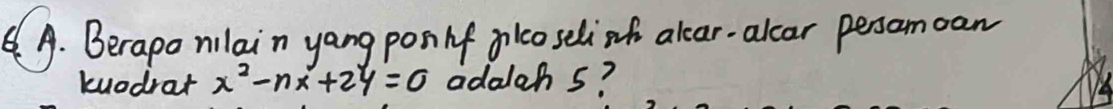 A. Berapa nilai n yang positif jika selisih akar-akar persamaan
kuadrat x² - nx + 24 = 0 adalah 5?